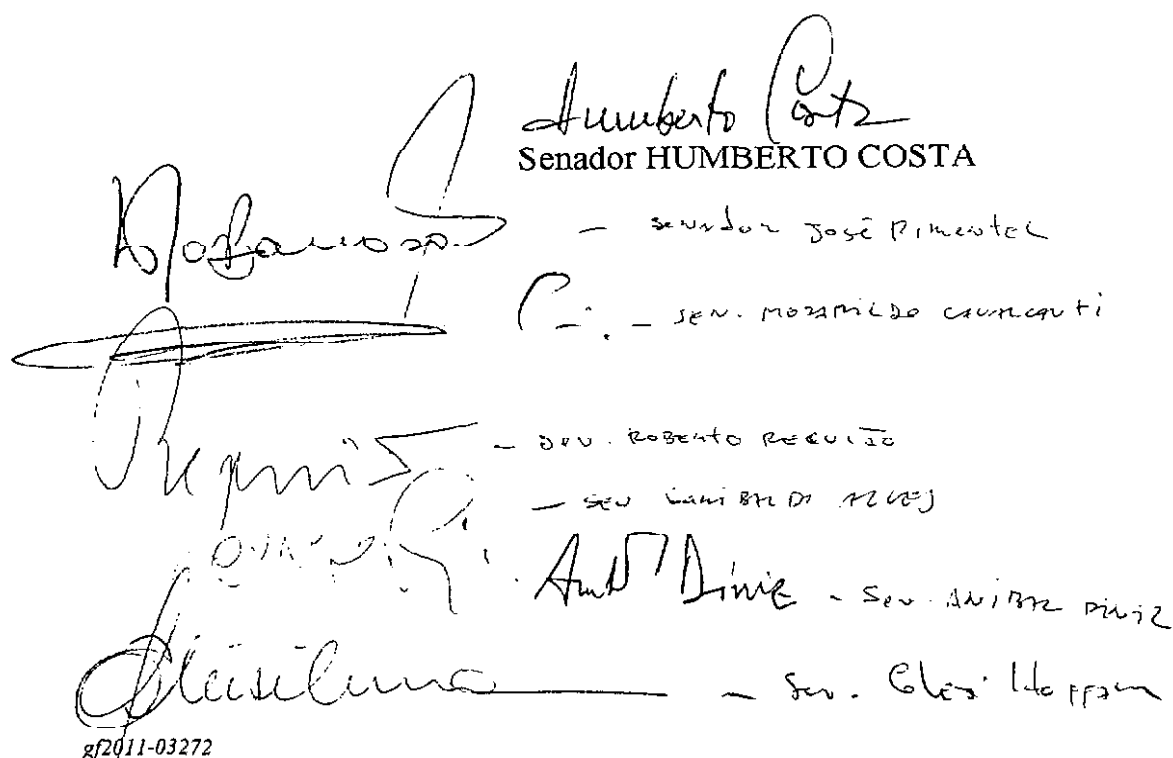 Humberto Costa
Senador HUMBERTO COSTA
- Senador José Pimentel
- SEN. MOZARILDO CAVALCANTI
- SEN. ROBERTO REQUIÃO
- SEN GARIBALDI ALVES
Diniz - Sen. ANIBAL DINIZ
- Sen. Gleisi Hoffmann
gf2011-03272